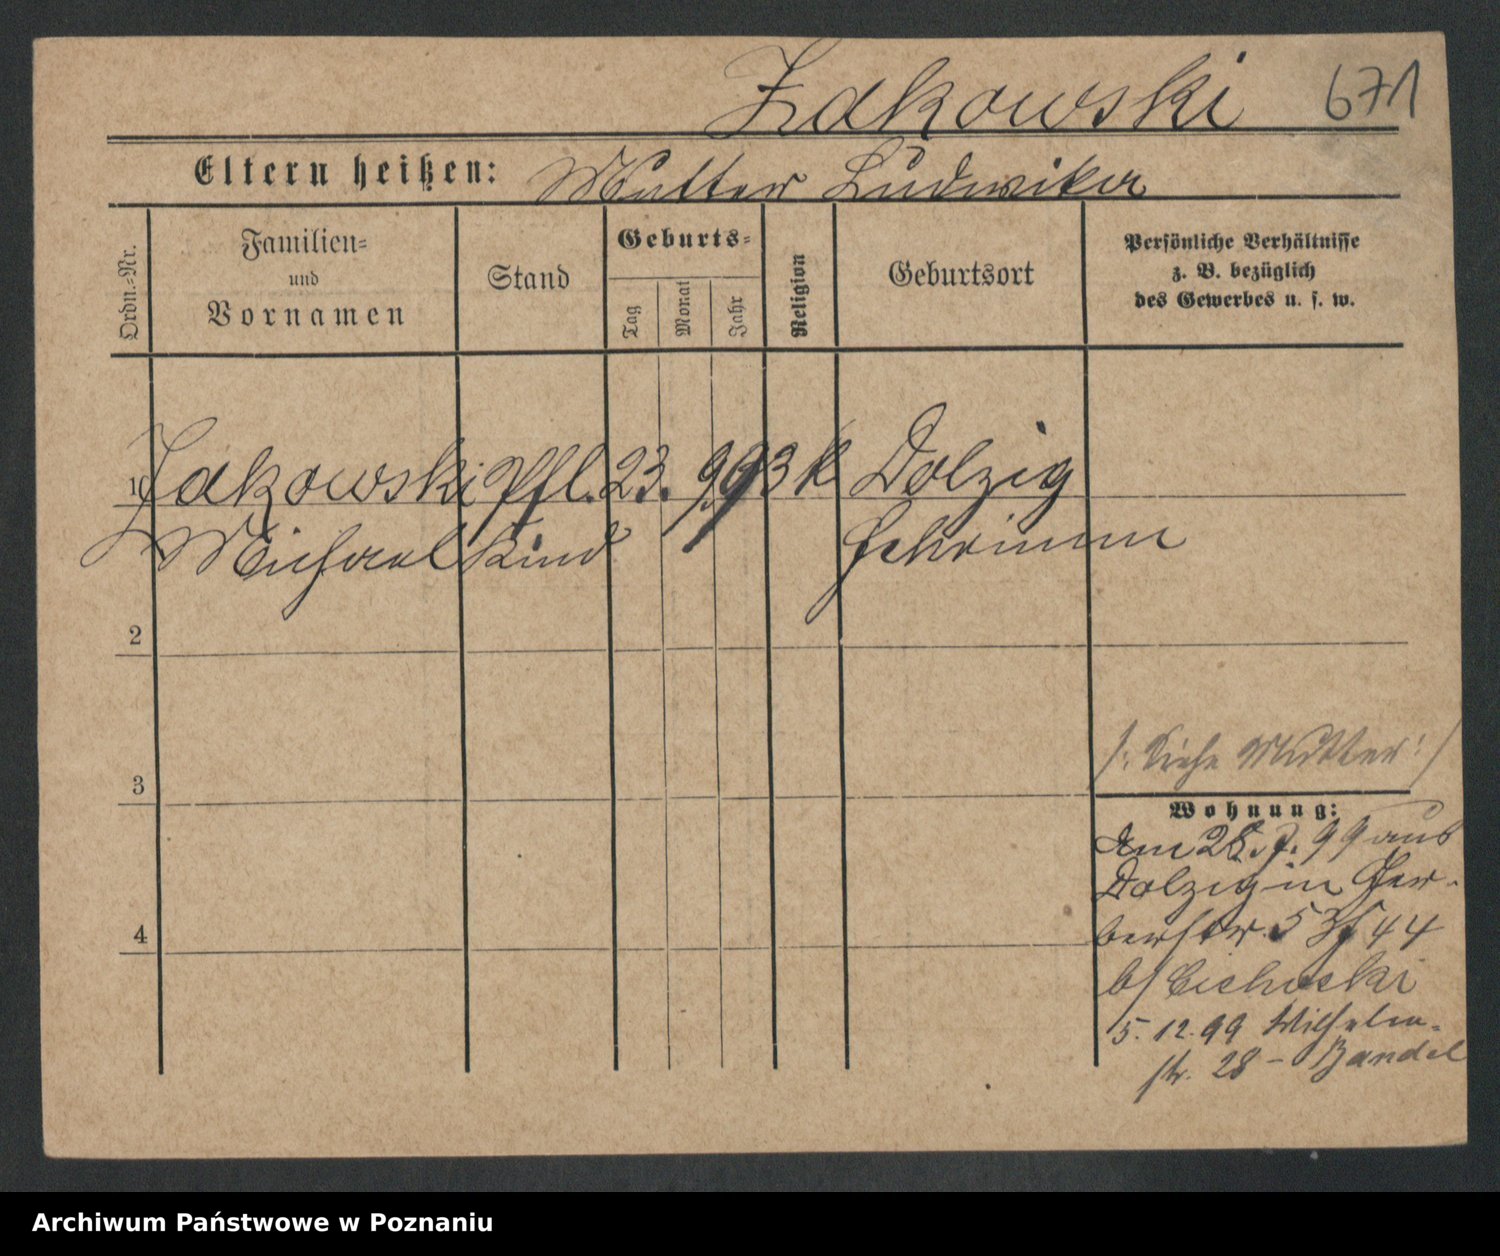 Żakowski 671
Eltern heißen: Mutter Ludwika
Ordn.-Nr.
Familien-
und
Vornamen
Stand
Geburts-
Tag
Monat
Jahr
Religion
Geburtsort
Persönliche Verhältnisse
z. B. bezüglich
des Gewerbes u. s. w.
1 Żakowski Pfl. 23. 9. 93 k Dolzig
Michael Kind Schrimm
2
3
/: Siehe Mutter :/
Wohnung:
Am 28. 7. 99 aus
Dolzig in Ger-
berstr. 5 44
b/ Cichocki
4
5. 12. 99 Wilhelm-
str. 28 - Bandel
Archiwum Państwowe w Poznaniu